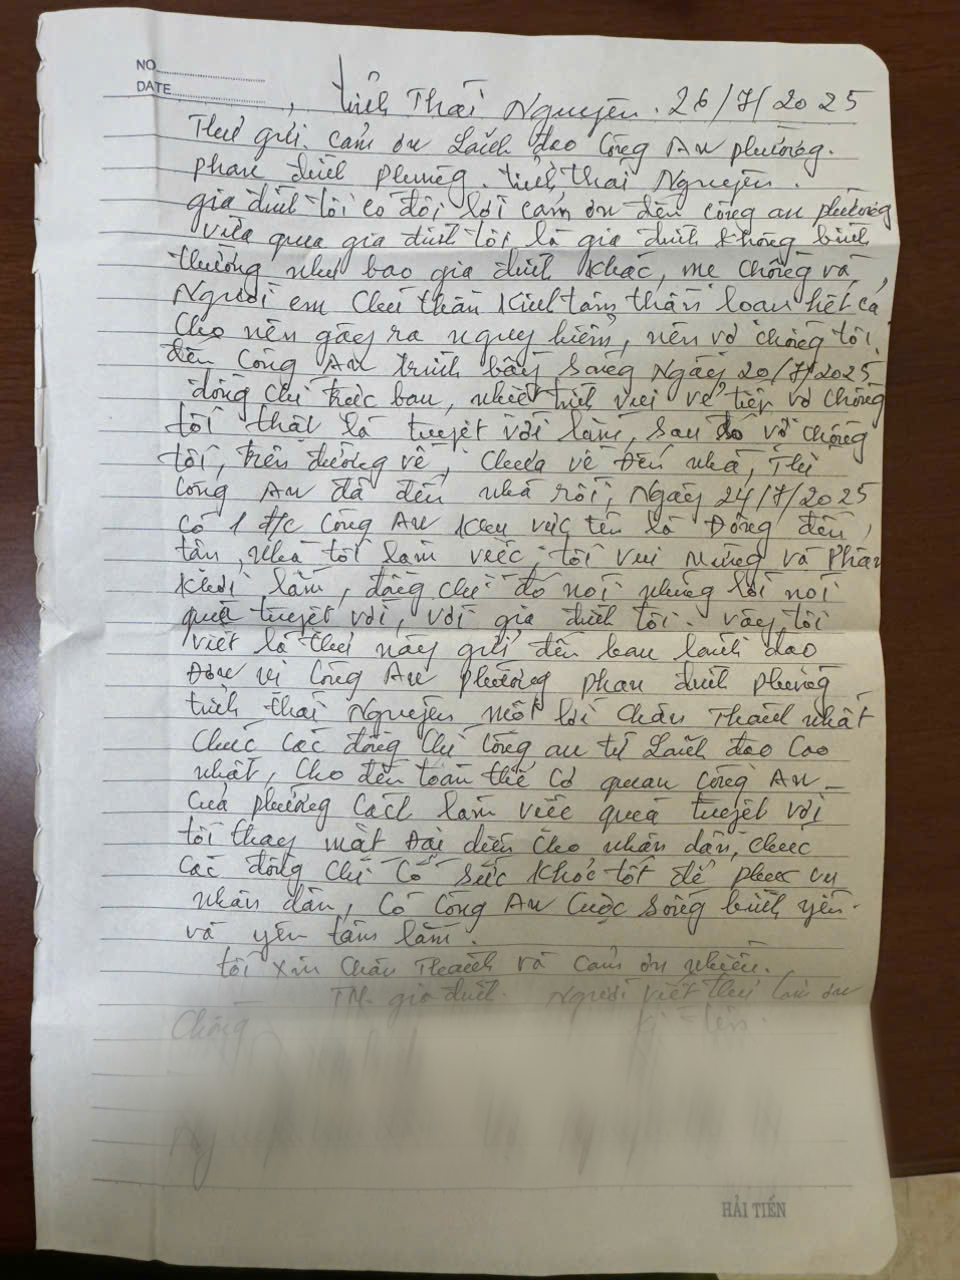 NO
DATE
, tỉnh Thái Nguyên. 26/7/2025
Thư gửi. cảm ơn Lãnh đạo Công An phường.
phan đình phùng. tỉnh, thái Nguyên.
gia đình tôi có đôi lời cảm ơn đến công an phường
vừa qua gia đình tôi là gia đình không bình
thường như bao gia đình khác, mẹ chồng và
Người em chú thần kinh tâm thần loạn hết cả
cho nên gây ra nguy hiểm, nên vợ chồng tôi
đến Công An trình bày sáng Ngày 20/7/2025
đồng chí trực ban, nhiệt tình vui vẻ tiếp vợ chồng
tôi thật là tuyệt vời lắm, sau đó vợ chồng
tôi, trên đường về, chưa về đến nhà, thì
công An đã đến nhà rồi, Ngày 24/7/2025
có 1 đ/c Công An khu vực tên là Đồng đến
tận, nhà tôi làm việc, tôi vui mừng và phấn
khởi lắm, đồng chí đó nói những lời nói
quá tuyệt vời, với gia đình tôi. vậy tôi
viết lá thư này gửi đến ban lãnh đạo
Đơn vị Công An phường phan đình phùng
tỉnh thái Nguyên một lời chân thành nhất
chúc các đồng chí công an từ Lãnh đạo cao
nhất, cho đến toàn thể cơ quan công An
của phường cách làm việc quá tuyệt vời
tôi thay mặt đại diện cho nhân dân, chúc
các đồng chí có sức khỏe tốt để phục vụ
nhân dân, có công An cuộc sống bình yên.
và yên tâm lắm.
tôi xin chân thành và cảm ơn nhiều.
TM. gia đình. Người viết thư cảm ơn
Chồng kí tên.
HẢI TIẾN